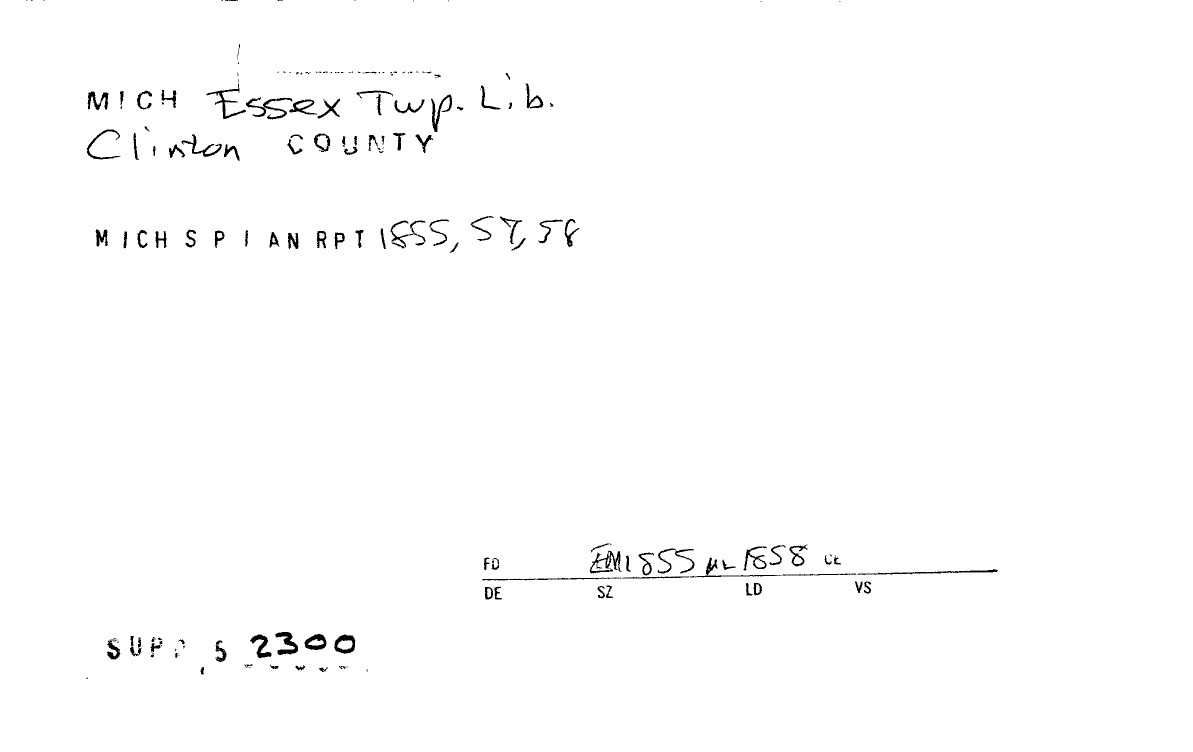 MICH Essex Twp. Lib.
Clinton COUNTY
MICH SPI AN RPT 1855, 57, 58
FD 1855 1858 CE
DE SZ LD VS
SUPP 5 2300